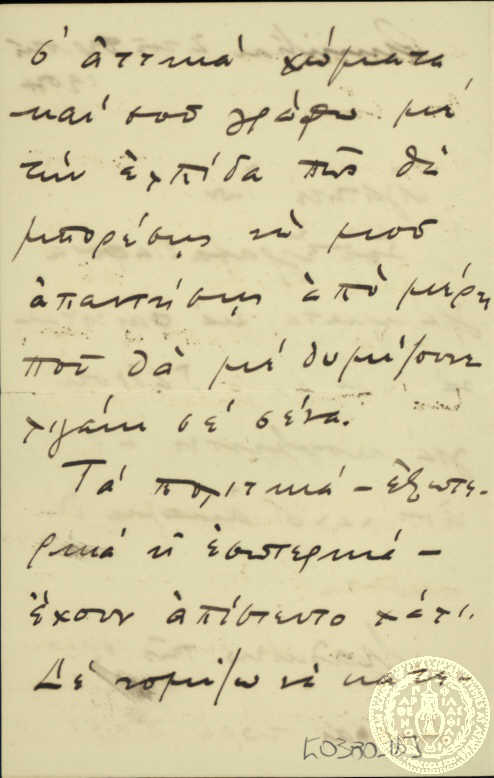 σ' ἀττικά χώματα
καί σοῦ γράφω μέ
τήν ἐλπίδα πῶς θὰ
μπορέσῃς νὰ μοῦ
ἀπαντήσῃς ἀπὸ μέρη
ποῦ θὰ μέ θυμίζουνε
λιγάκι σέ σένα.
Τά πολιτικά – ἐξωτε-
ρικά κ ἐσωτερικά –
ἔχουν ἀπίστευτο χάλι.
Δέ νομίζω νὰ κατε-